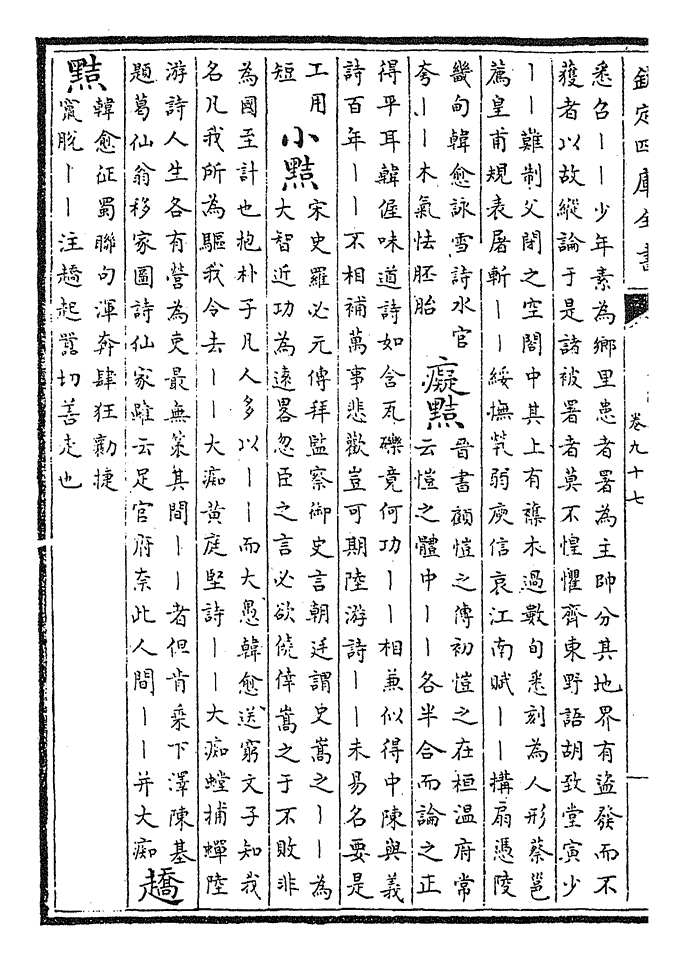 欽定四庫全書
卷九十七
悉召丨丨少年素為鄉里患者署為主帥分其地界有盗發而不
獲者以故縱論于是諸被署者莫不惶懼齊東野語胡致堂寅少
丨丨難制父閉之空閣中其上有襍木過數旬悉刻為人形蔡邕
薦皇甫規表屠斬丨丨綏撫煢弱庾信哀江南賦丨丨搆扇憑陵
畿甸韓愈詠雪詩水官
夸丨丨木氣怯胚胎
癡黠
晉書顧愷之傳初愷之在桓温府常
云愷之體中丨丨各半合而論之正
得平耳韓偓味道詩如含瓦礫竟何功丨丨相兼似得中陳與義
詩百年丨丨不相補萬事悲歡豈可期陸游詩丨丨未易名要是
工用
短
小黠
宋史羅必元傳拜監察御史言朝廷謂史嵩之丨丨為
大智近功為遠畧忽臣之言必欲僥倖嵩之于不敗非
為國至計也抱朴子凡人多以丨丨而大愚韓愈送窮文子知我
名凡我所為驅我令去丨丨大痴黄庭堅詩丨丨大痴螳捕蟬陸
游詩人生各有營為吏最無策其間丨丨者但肯乗下澤陳基
題葛仙翁移家圖詩仙家雖云足官府奈此人間丨丨并大痴
趫
黠
韓愈征蜀聯句渾奔肆狂勷捷
竄脫丨丨注趫起囂切善走也